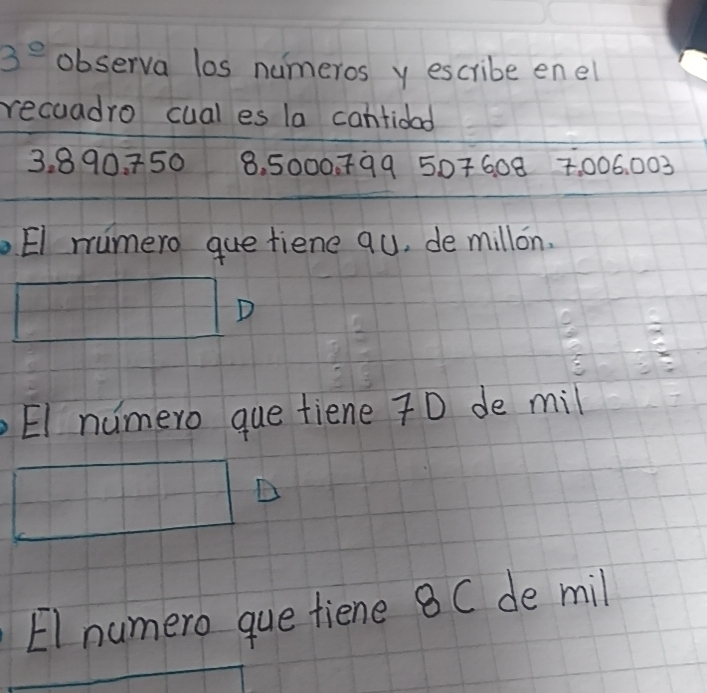 3º observa los números y escribe en el
recuadro cual es la cantidad
3.890.750 8.5000.799 507608 7.006.003
El número que tiene 9U. de millón.
D
El número que tiene 7D de mil
D
El numero que tiene 8C de mil